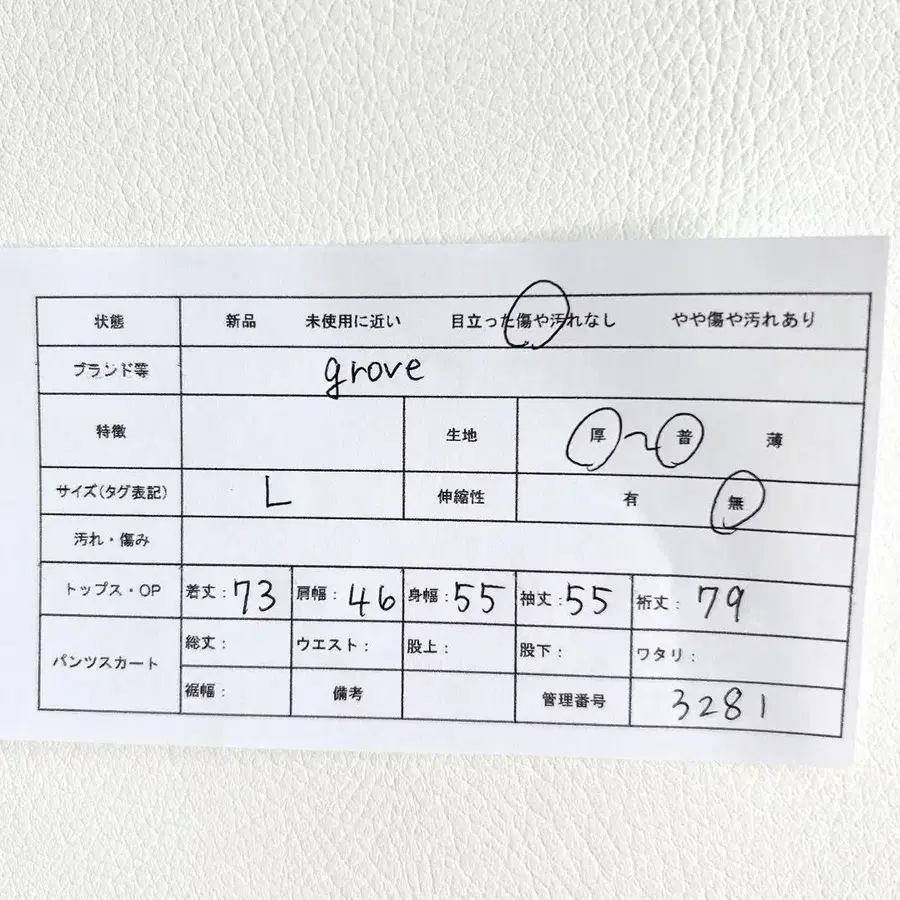 状態 新品 未使用に近い 目立った傷や汚れなし やや傷や汚れあり
ブランド等 grove
特徴 生地 厚 〜 普 薄
サイズ(タグ表記) L 伸縮性 有 無
汚れ・傷み
トップス・OP 着丈:73 肩幅:46 身幅:55 袖丈:55 裄丈:79
パンツスカート 総丈: ウエスト: 股上: 股下: ワタリ:
裾幅: 備考 管理番号 3281